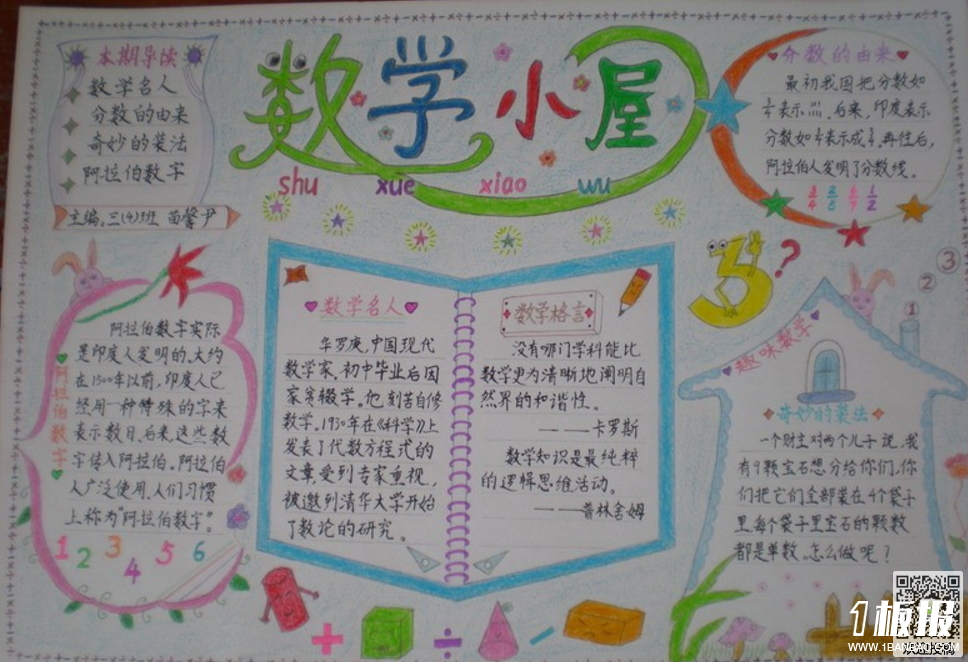 数学小屋
shu xue xiao wu
本期导读
数学名人
分数的由来
奇妙的装法
阿拉伯数字
主编:三(4)班 苗馨尹
分数的由来
最初我国把分数如
表示 后来,印度表示
分数如 表示成 再往后,
阿拉伯人发明了分数线。
3/4 2/5 6/7 1/2
阿拉伯数字
阿拉伯数字实际
是印度人发明的,大约
在1500年以前,印度人已
经用一种特殊的字来
表示数目,后来,这些数
字传入阿拉伯,阿拉伯
人广泛使用,人们习惯
上称为“阿拉伯数字”。
1 2 3 4 5 6
数学名人
华罗庚,中国现代
数学家,初中毕业后因
家贫辍学。他刻苦自修
数学,1930年在《科学》上
发表了代数方程式的
文章,受到专家重视,
被邀到清华大学开始
了数论的研究。
数学格言
没有哪门学科能比
数学更为清晰地阐明自
然界的和谐性。
——卡罗斯
数学知识是最纯粹
的逻辑思维活动。
——普林舍姆
3?
1
2
3
趣味数学
奇妙的装法
一个财主对两个儿子说,我
有9颗宝石想分给你们,你
们把它们全部装在4个袋子
里,每个袋子里宝石的颗数
都是单数。怎么做呢?
+ ÷ -
1板报
WWW.1BANBAO.COM
欢迎投稿